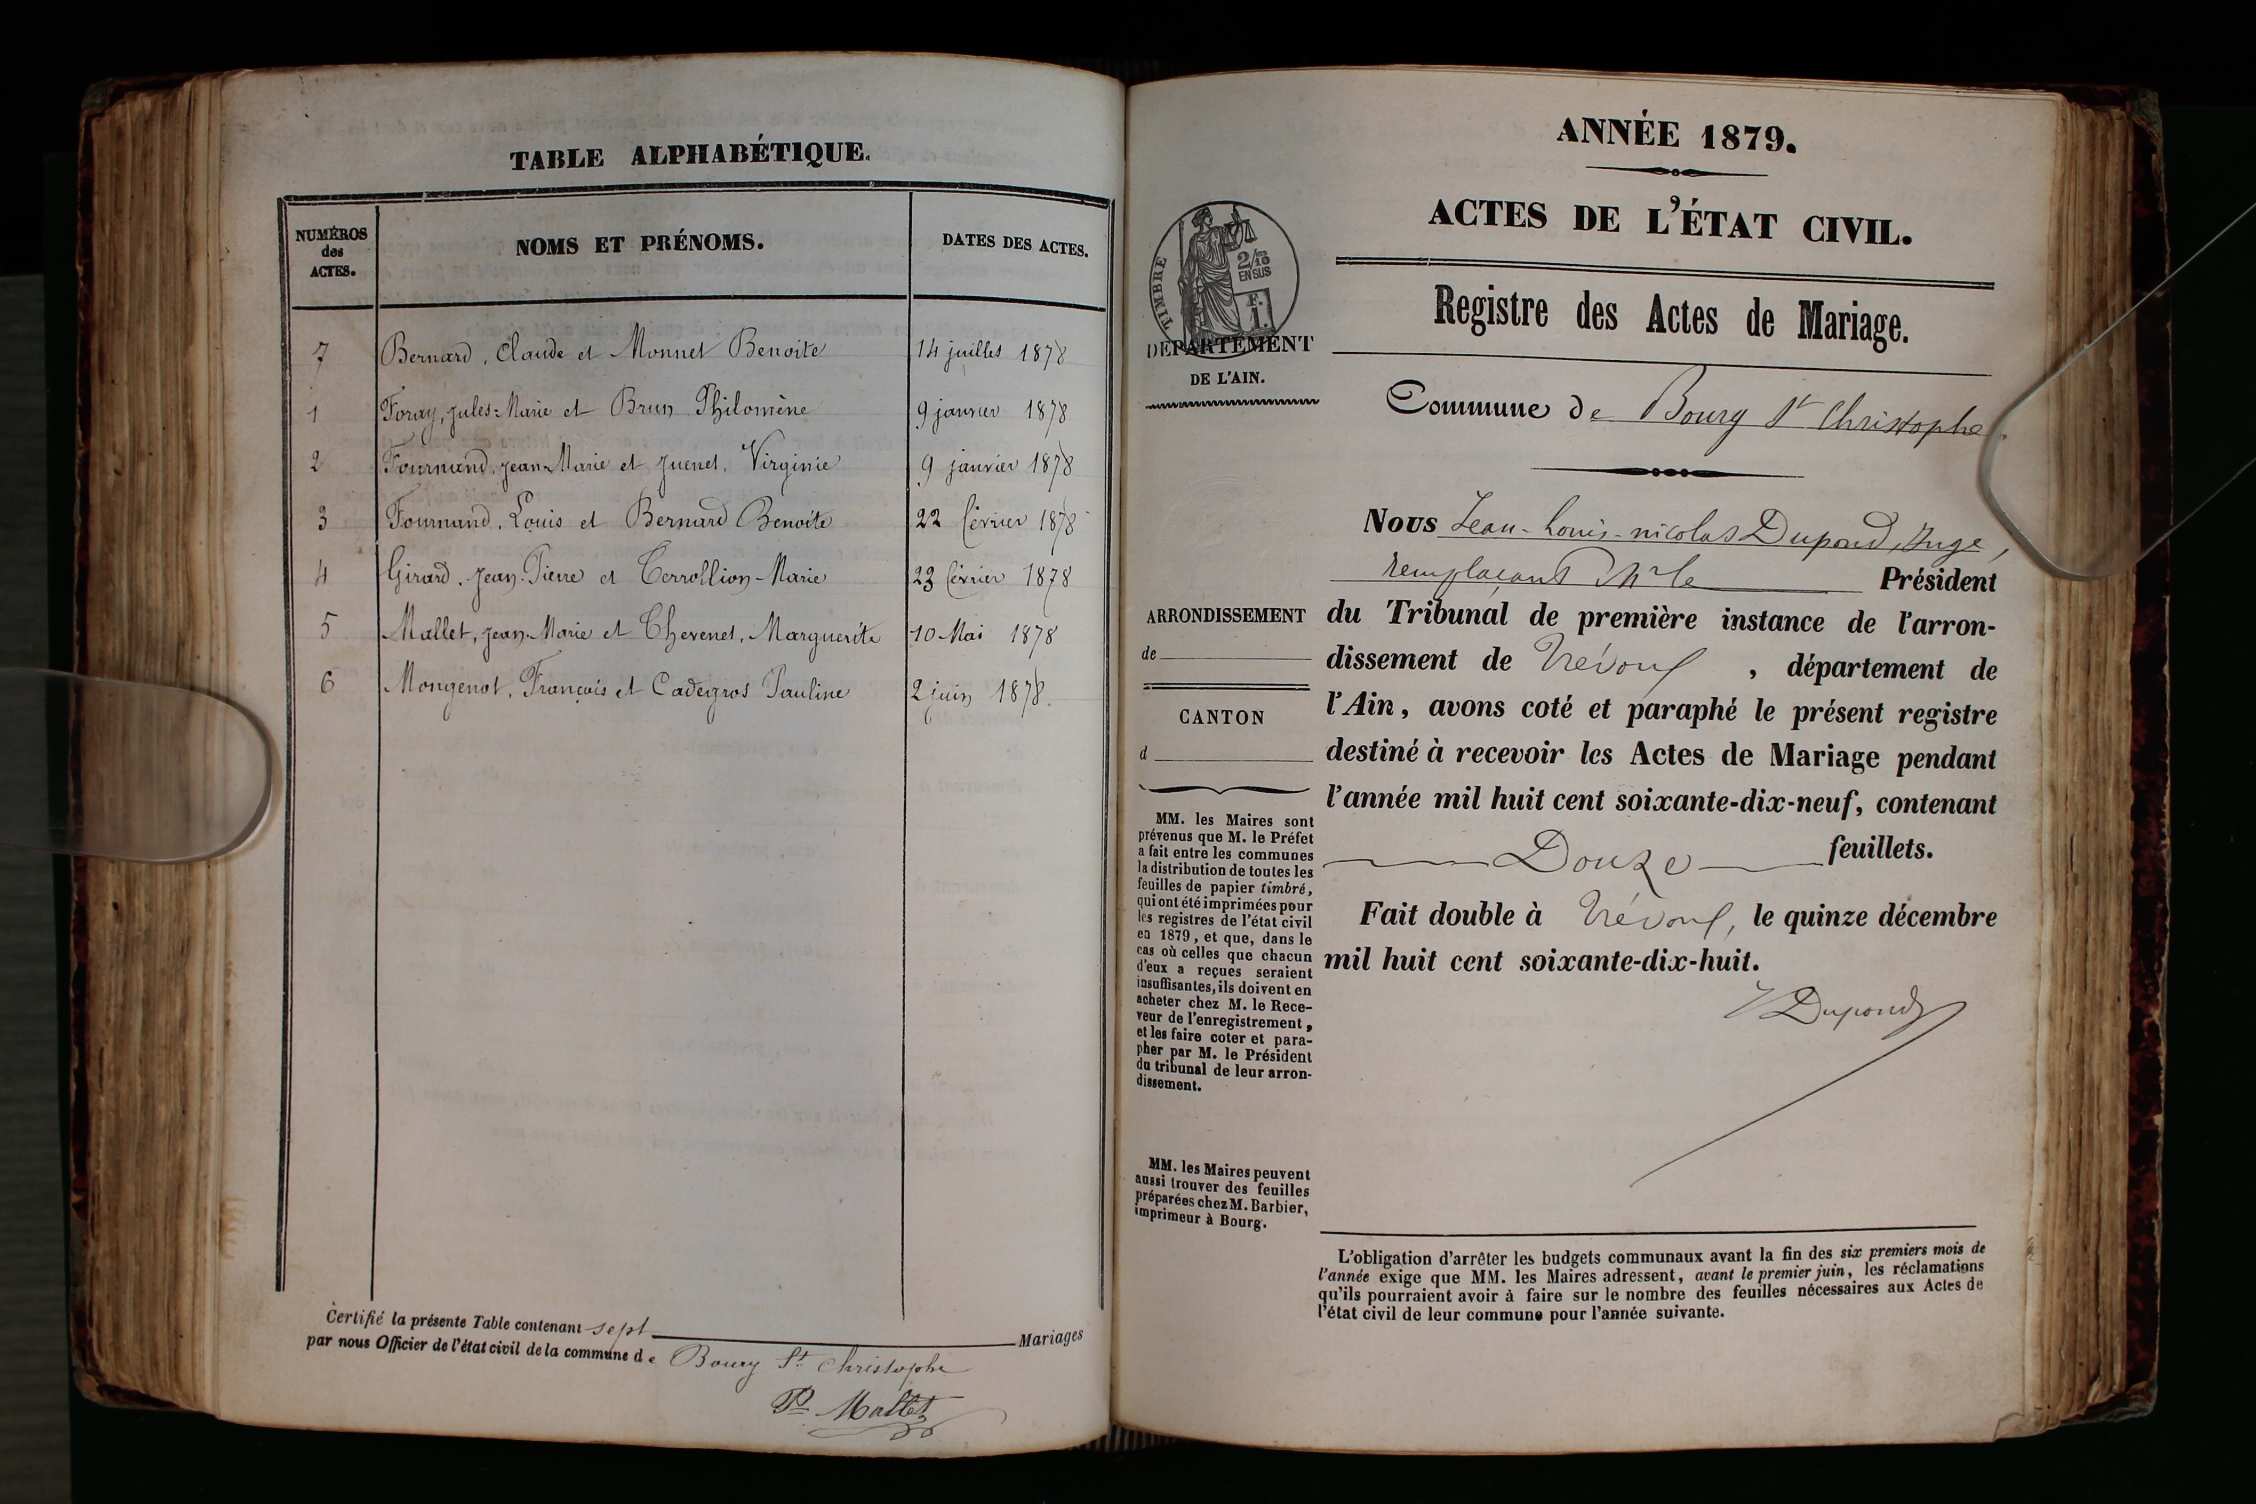 TABLE ALPHABÉTIQUE.
NUMÉROS des ACTES.
NOMS ET PRÉNOMS.
DATES DES ACTES.
7 Bernard, Claude et Monnet Benoite 14 juillet 1878
1 Foray, Jules-Marie et Brun Philomène 9 janvier 1878
2 Fournand, Jean-Marie et Juenet, Virginie 9 janvier 1878
3 Fournand, Louis et Bernard Benoite 22 février 1878
4 Girard, Jean-Pierre et Terrollion-Marie 23 février 1878
5 Mallet, Jean-Marie et Thevenet, Marguerite 10 Mai 1878
6 Mongenot, François et Cadegros Pauline 2 juin 1878.
Certifié la présente Table contenant sept Mariages
par nous Officier de l'état civil de la commune de Bourg St Christophe
Mallet
ANNÉE 1879.
ACTES DE L'ÉTAT CIVIL.
TIMBRE
2/10 EN SUS
F. 1.
DÉPARTEMENT
DE L'AIN.
Registre des Actes de Mariage.
Commune de Bourg St Christophe.
Nous Jean-Louis-nicolas Dupond, Juge,
remplaçant Mr le Président
du Tribunal de première instance de l'arron-
dissement de Trévoux, département de
l'Ain, avons coté et paraphé le présent registre
destiné à recevoir les Actes de Mariage pendant
l'année mil huit cent soixante-dix-neuf, contenant
Douze feuillets.
Fait double à Trévoux, le quinze décembre
mil huit cent soixante-dix-huit.
Dupond
ARRONDISSEMENT
de
CANTON
d
MM. les Maires sont
prévenus que M. le Préfet
a fait entre les communes
la distribution de toutes les
feuilles de papier timbré,
qui ont été imprimées pour
les registres de l'état civil
en 1879, et que, dans le
cas où celles que chacun
d'eux a reçues seraient
insuffisantes, ils doivent en
acheter chez M. le Rece-
veur de l'enregistrement,
et les faire coter et para-
pher par M. le Président
du tribunal de leur arron-
dissement.
MM. les Maires peuvent
aussi trouver des feuilles
préparées chez M. Barbier,
imprimeur à Bourg.
L'obligation d'arrêter les budgets communaux avant la fin des six premiers mois de
l'année exige que MM. les Maires adressent, avant le premier juin, les réclamations
qu'ils pourraient avoir à faire sur le nombre des feuilles nécessaires aux Actes de
l'état civil de leur commune pour l'année suivante.